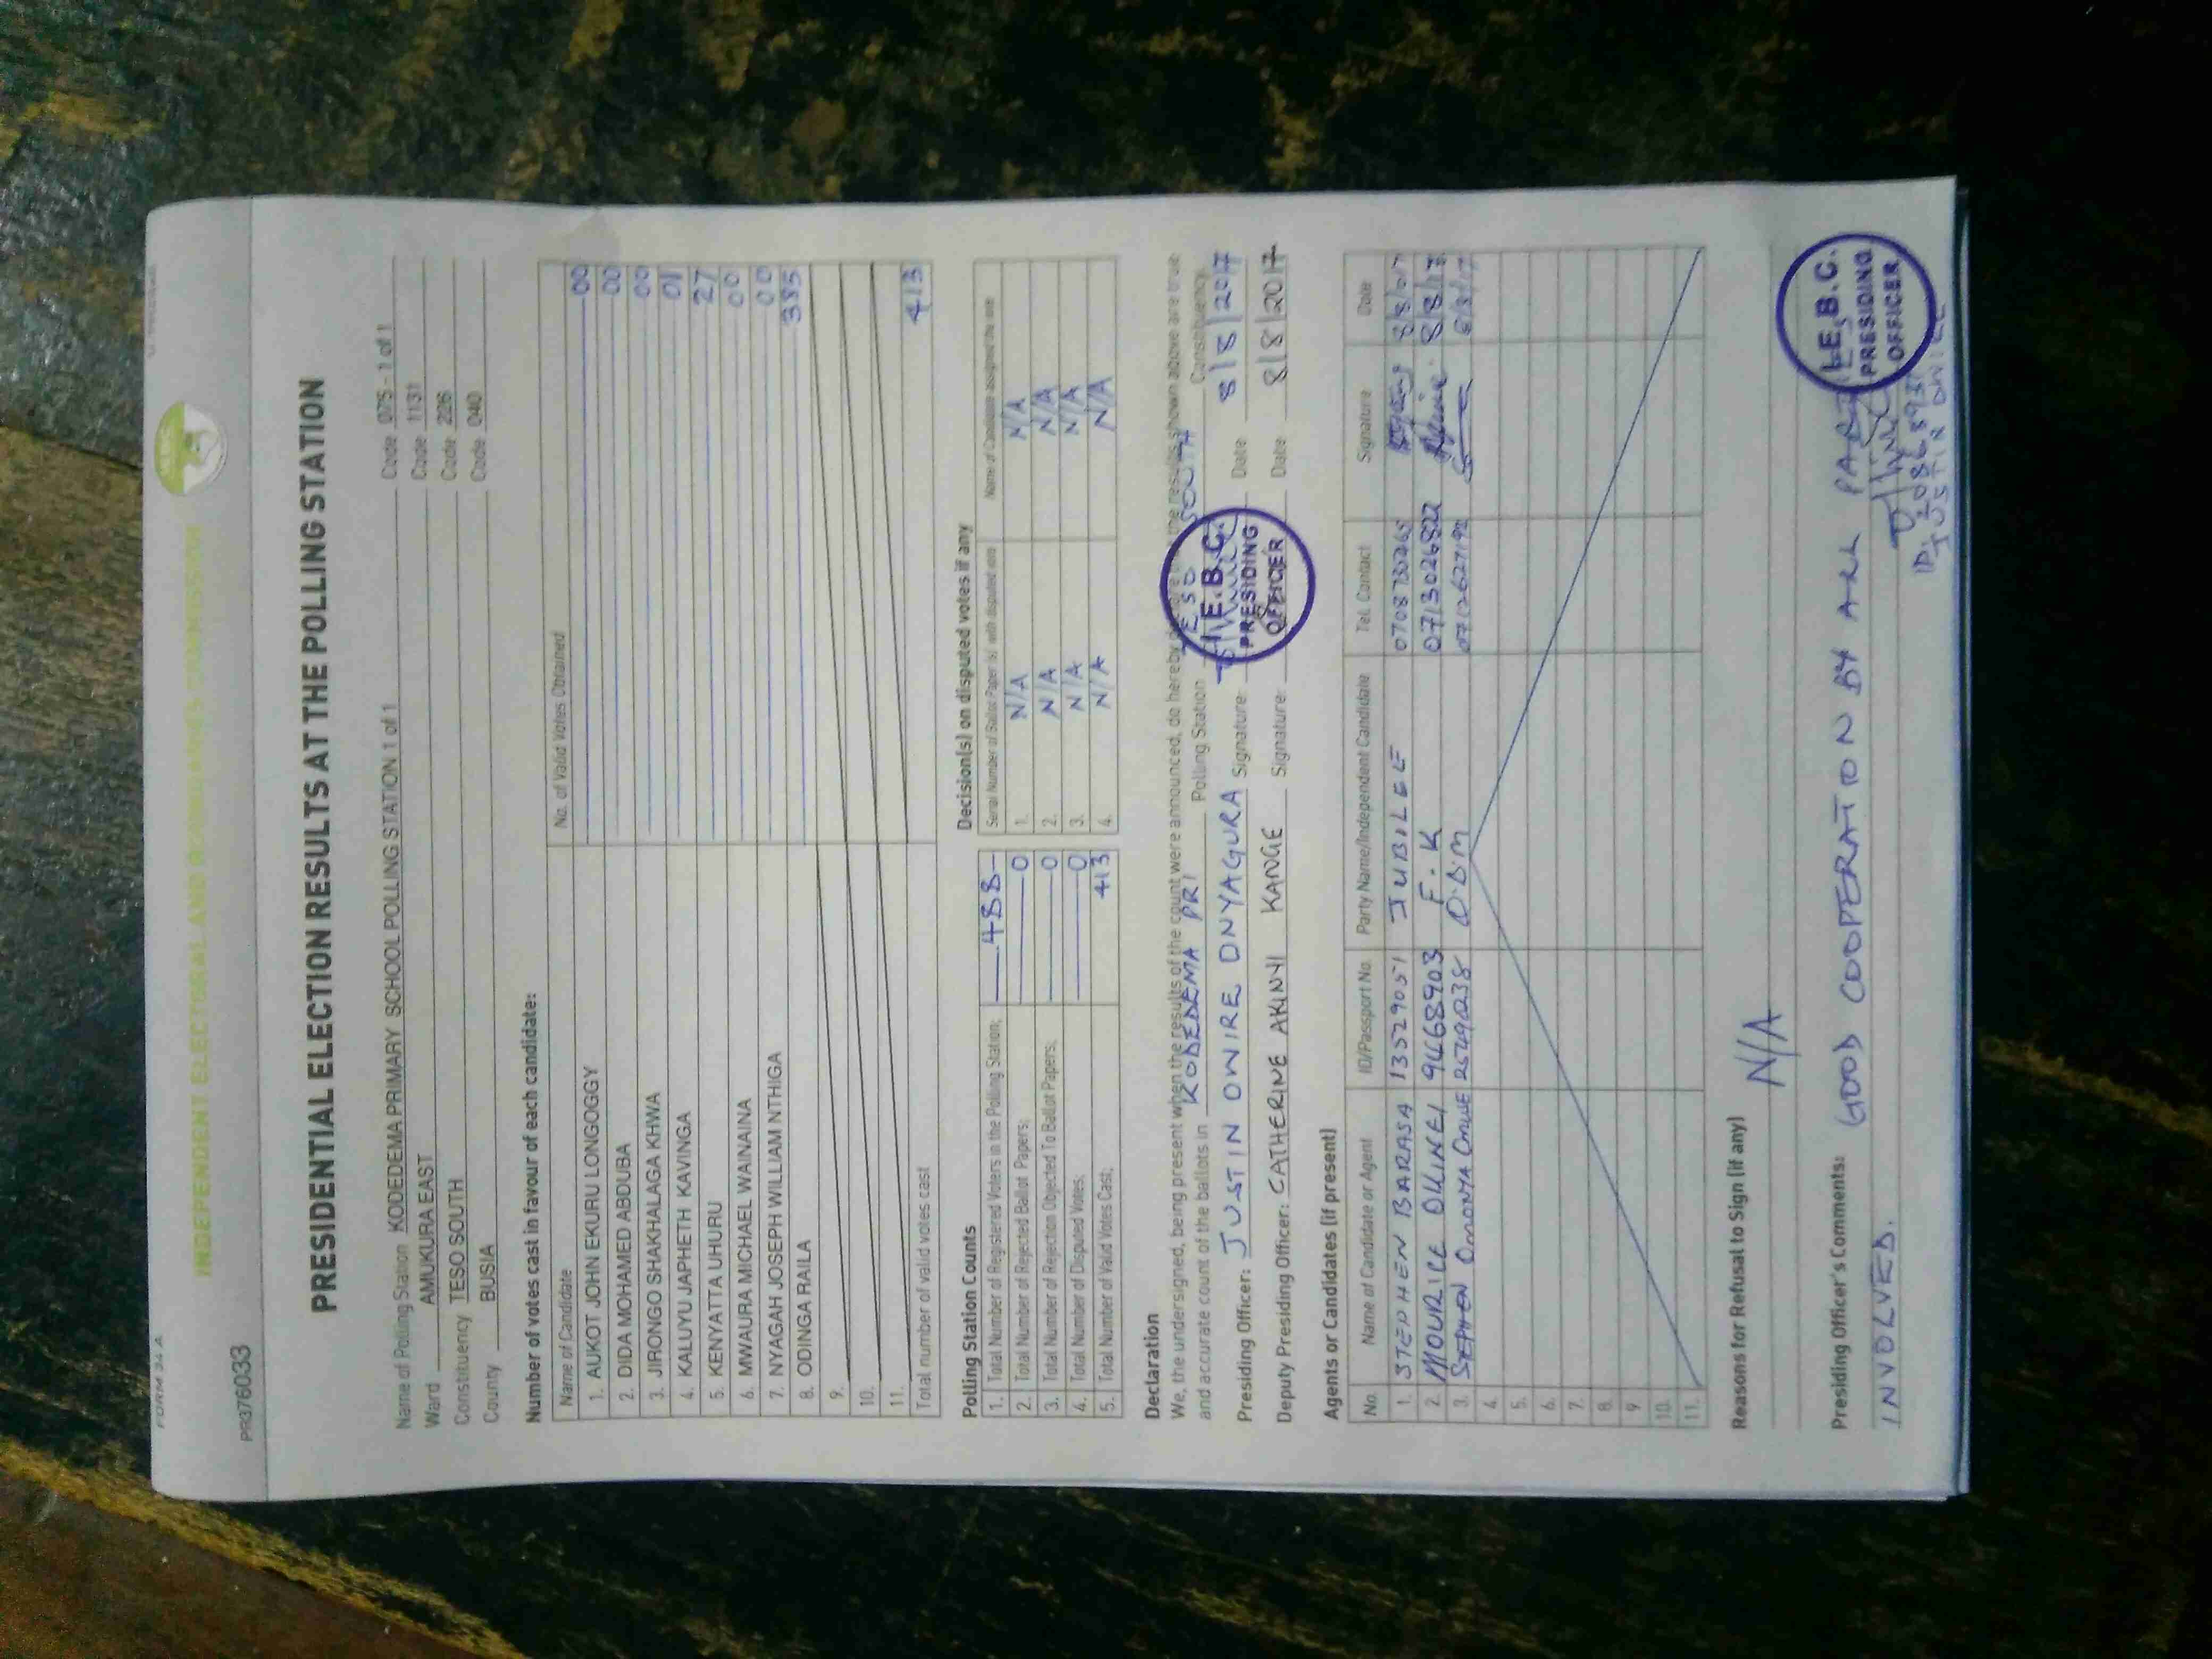 FORM 34 A
INDEPENDENT ELECTORAL AND BOUNDARIES COMMISSION
PR376033
PRESIDENTIAL ELECTION RESULTS AT THE POLLING STATION
Name of Polling Station KODEDEMA PRIMARY SCHOOL POLLING STATION 1 of 1 Code 075 - 1 of 1
Ward AMUKURA EAST Code 1131
Constituency TESO SOUTH Code 226
County BUSIA Code 040
Number of votes cast in favour of each candidate:
Name of Candidate No. of Valid Votes Obtained
1. AUKOT JOHN EKURU LONGOGGY 00
2. DIDA MOHAMED ABDUBA 00
3. JIRONGO SHAKHALAGA KHWA 00
4. KALUYU JAPHETH KAVINGA 01
5. KENYATTA UHURU 27
6. MWAURA MICHAEL WAINAINA 00
7. NYAGAH JOSEPH WILLIAM NTHIGA 00
8. ODINGA RAILA 385
9.
10.
11.
Total number of valid votes cast 413
Polling Station Counts
1. Total Number of Registered Voters in the Polling Station; 488
2. Total Number of Rejected Ballot Papers; 0
3. Total Number of Rejection Objected To Ballot Papers; 0
4. Total Number of Disputed Votes; 0
5. Total Number of Valid Votes Cast; 413
Decision(s) on disputed votes if any
Serial Number of Ballot Paper (s) with disputed vote Name of Candidate assigned the vote
1. N/A N/A
2. N/A N/A
3. N/A N/A
4. N/A N/A
Declaration
We, the undersigned, being present when the results of the count were announced, do hereby the results shown above are true
and accurate count of the ballots in KODEDEMA PRI Polling Station TESO SOUTH Constituency
Presiding Officer: JUSTIN OWIRE ONYAGURA Signature: Date 8/8/2017
Deputy Presiding Officer: CATHERINE AKINYI KANGE Signature: Date 8/8/2017
I.E.B.C.
PRESIDING
OFFICER
Agents or Candidates (if present)
No. Name of Candidate or Agent ID/Passport No. Party Name/Independent Candidate Tel. Contact Signature Date
1. STEPHEN BARASA 13529051 JUBILEE 0708730265 8/8/017
2. MOURICE 94468903 F.K 0713026822 8/8/17
3. STEPHEN OMONYA 257490238 O.D.M 0712627192 8/8/17
4.
5.
6.
7.
8.
9.
10.
11.
Reasons for Refusal to Sign (if any)
N/A
Presiding Officer's Comments: GOOD COOPERATION BY ALL
INVOLVED.
I.E.B.C.
PRESIDING
OFFICER
JUSTIN